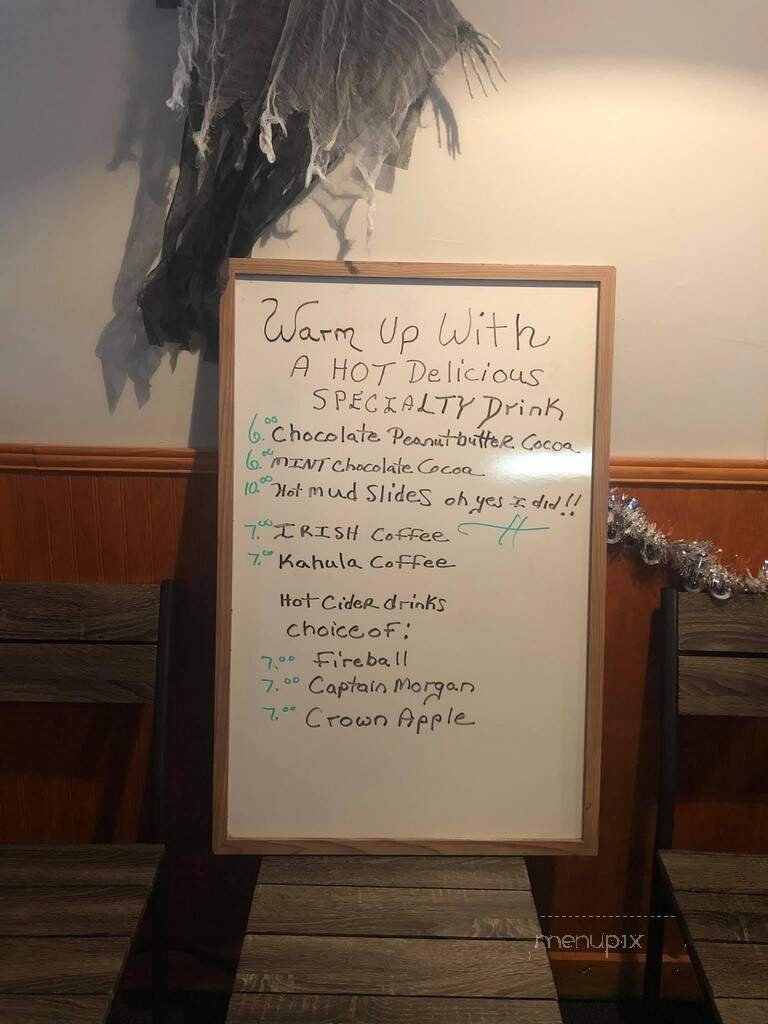 Warm Up With
A HOT Delicious
SPECIALTY Drink
6.00 Chocolate Peanut butter Cocoa
6.00 MINT Chocolate Cocoa
10.00 Hot mud Slides oh yes I did!!
7.00 IRISH Coffee
7.00 Kahula Coffee
Hot Cider drinks
Choice of:
7.00 Fireball
7.00 Captain Morgan
7.00 Crown Apple
menupix